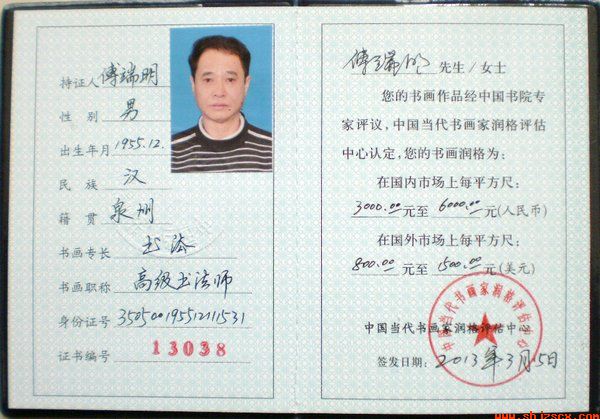 持证人 傅瑞明
性别 男
出生年月 1955.12.
民族 汉
籍贯 泉州
书画专长 书法
书画职称 高级书法师
身份证号 350500195512111531
证书编号 13038
傅瑞明 先生/女士
您的书画作品经中国书院专
家评议，中国当代书画家润格评估
中心认定，您的书画润格为：
在国内市场上每平方尺：
3000.00元至 6000.00元(人民币)
在国外市场上每平方尺：
800.00元至 1500.00元(美元)
中国当代书画家润格评估中心
中国当代书画家润格评估中心
签发日期： 2013年3月15日
www.shjzscx.com